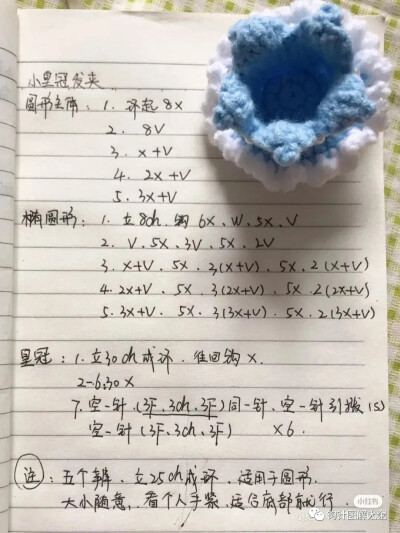 小皇冠发夹
圆形主体：1. 环起8X
2. 8V
3. X+V
4. 2X+V
5. 3X+V
椭圆形：1. 立8ch, 钩6X、W、5X、V
2. V、5X、3V、5X、2V
3. X+V、5X、3(X+V)、5X、2(X+V)
4. 2X+V、5X、3(2X+V)、5X、2(2X+V)
5. 3X+V、5X、3(3X+V)、5X、2(3X+V)
皇冠：1. 立30ch成环、往回钩X.
2-6. 30X
7. 空一针、(3F、3ch、3F)同一针、空一针引拨(S)
空一针(3F、3ch、3F) X6.
注：五个瓣、立25ch成环、适用于圆形、
大小随意、看个人手紧、适合底部就行、
小红书
钩针图解大全